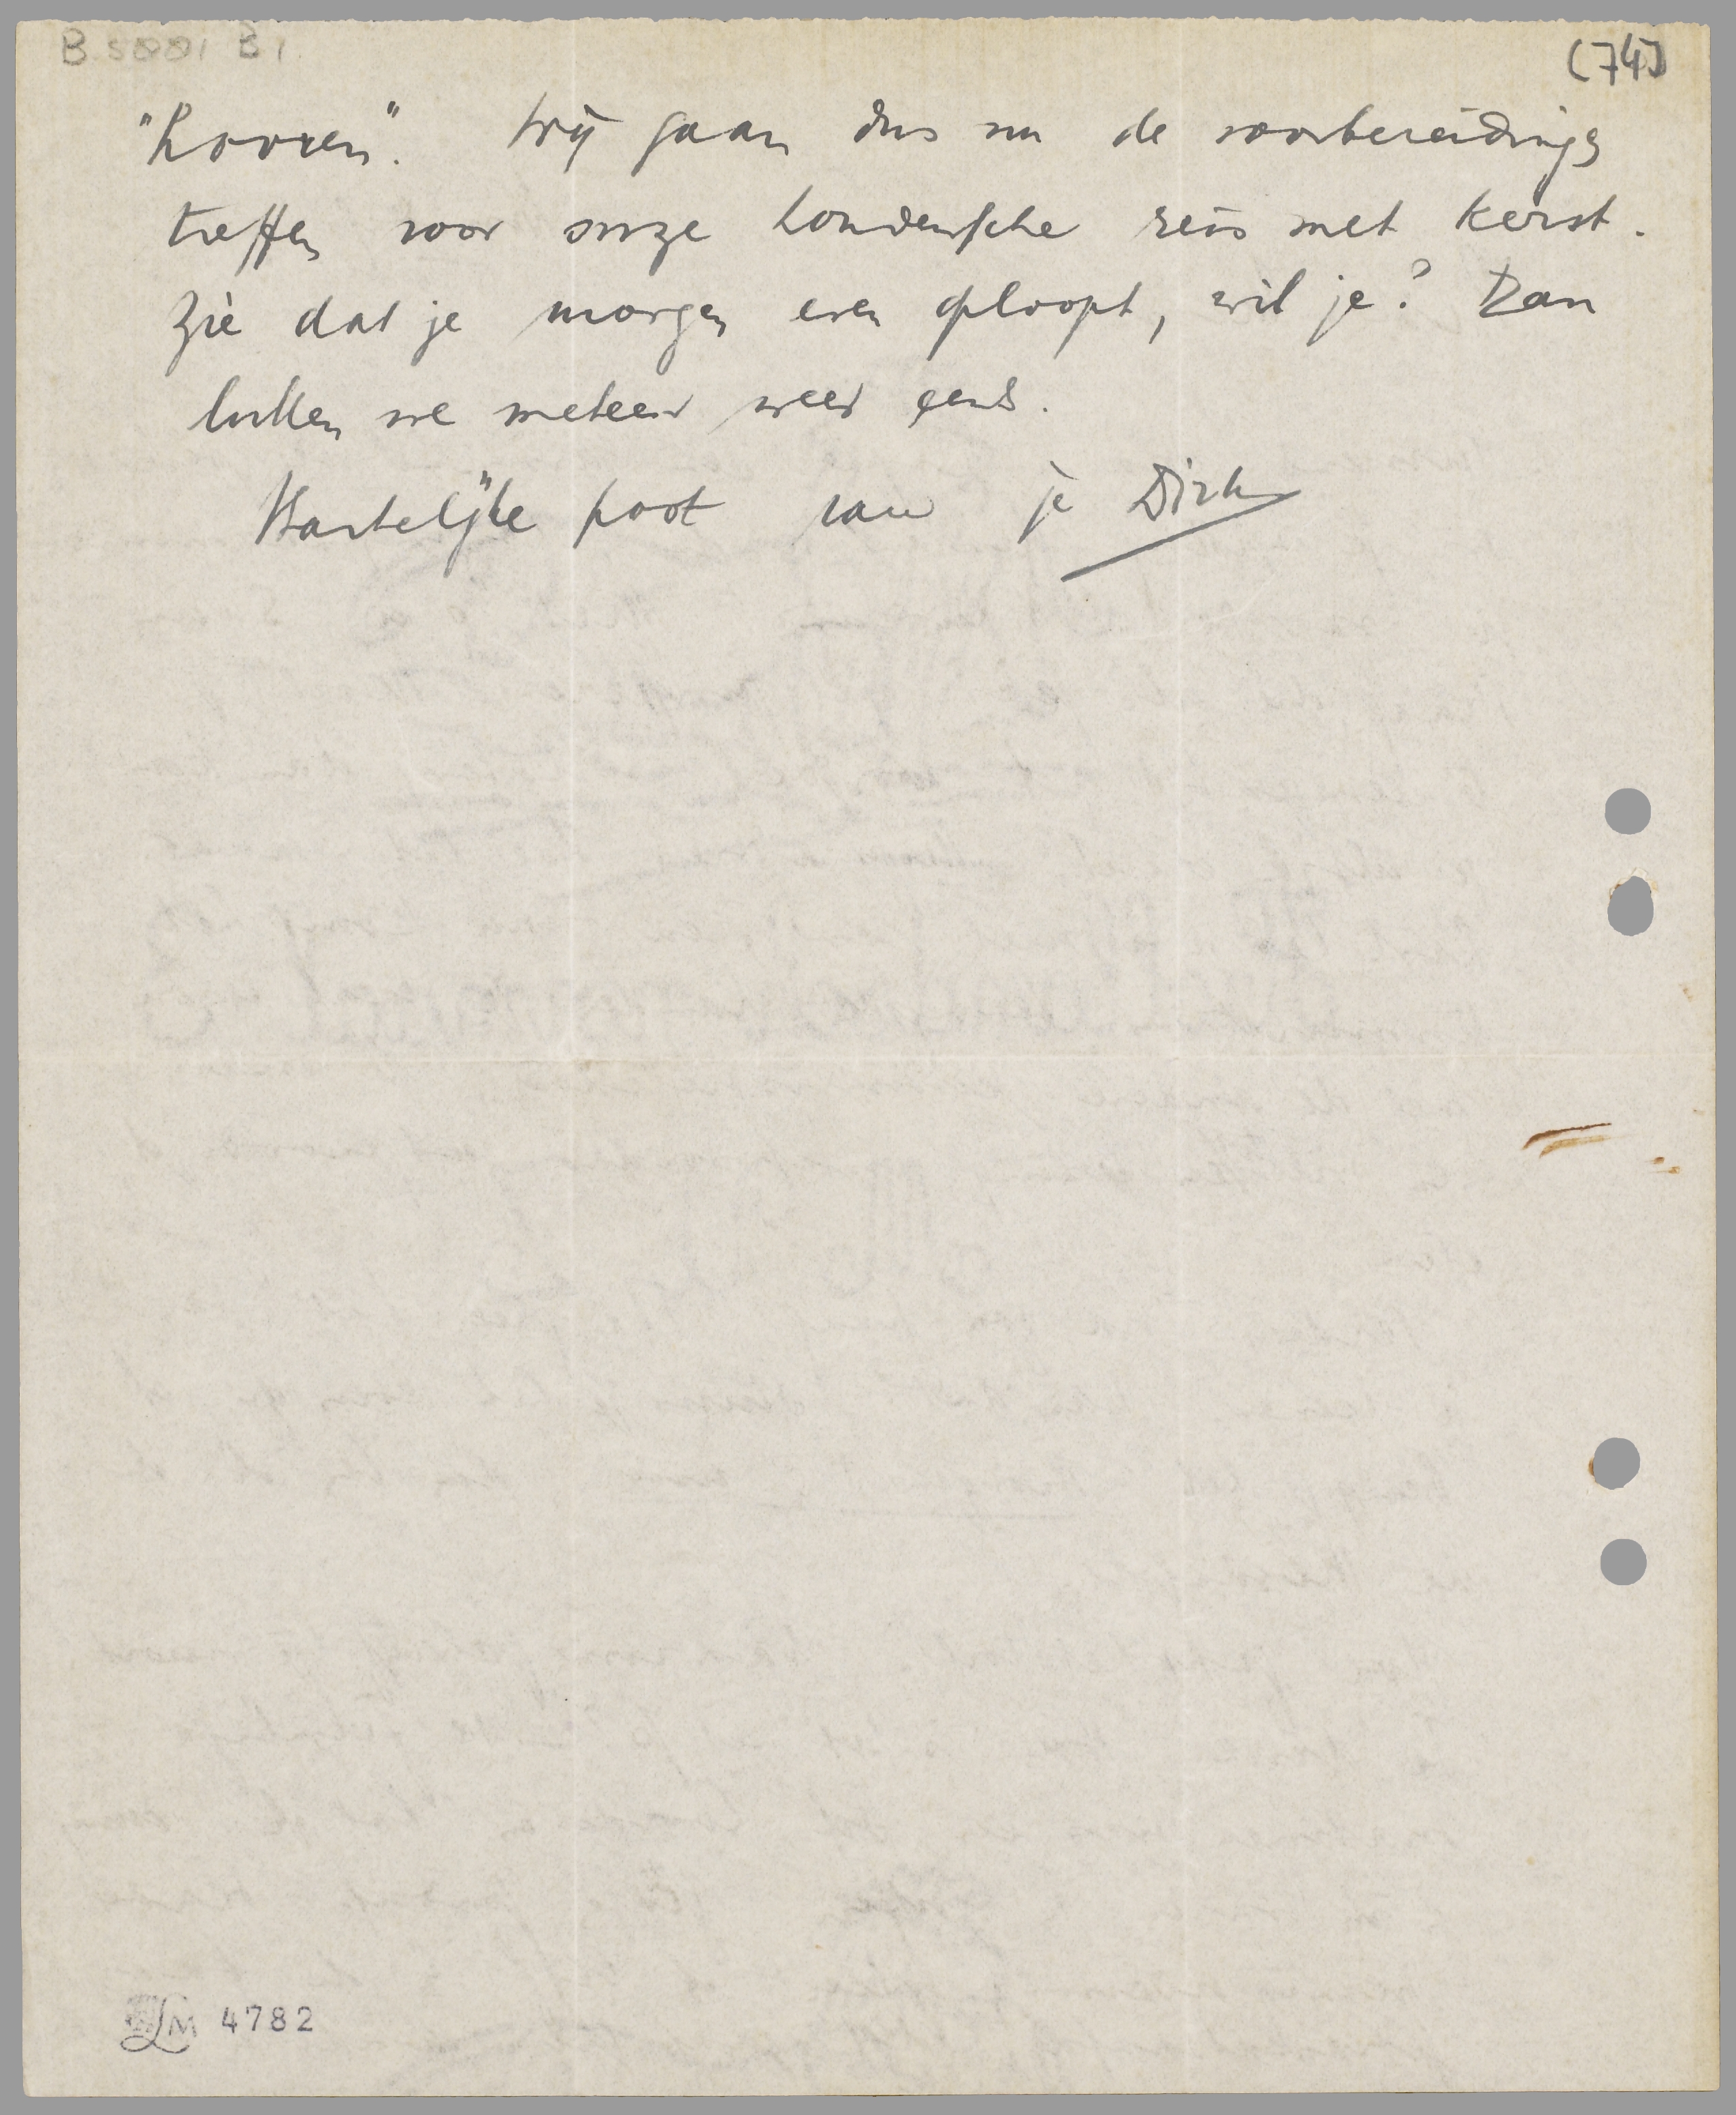 B 5001 B1.
(74)
"hooren". Wij gaan dus nu de voorbereidingen
treffen voor onze Londensche reis met Kerst.
Zie dat je morgen even oploopt, wil je? Dan
lullen we meteen weer eens.
Hartelijke poot van je Dirk
LM 4782